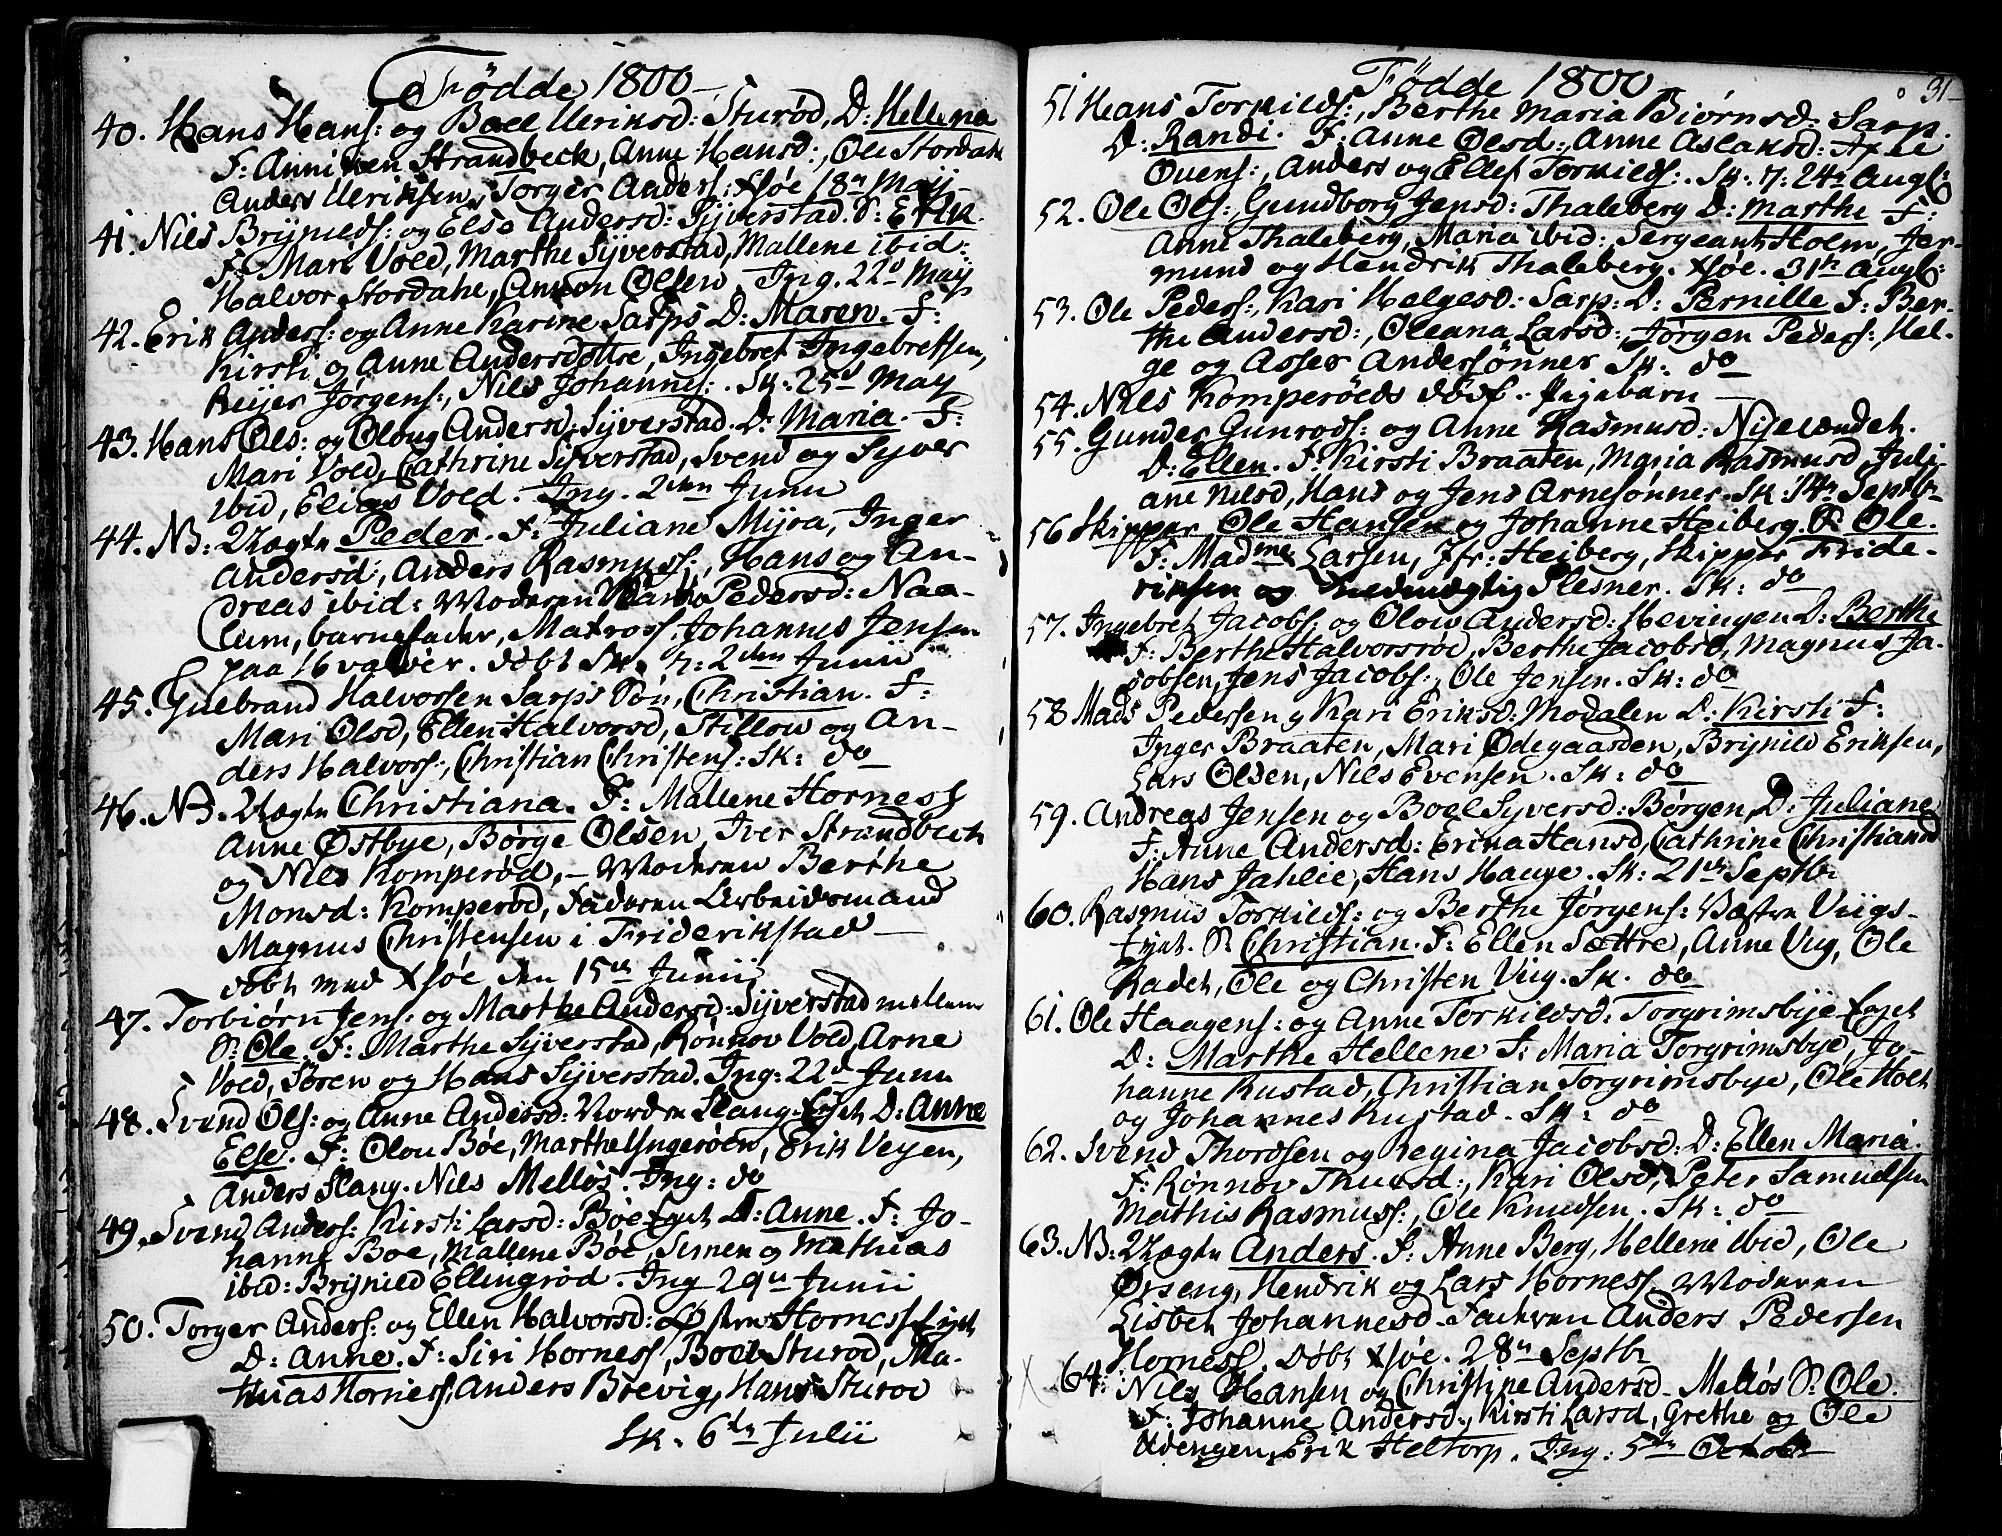 Födde 1800
40. Hans Hans: og Boel Ulriksd: Sturød, D: Hellena
F: Anniken Strandbeck, Anne Hansd:, Ole Stordahl
Anders Ulriksen, Torger Anders: Xsøe 18n Maij
41. Nils Brijnilds: og Else Andersd: Sijverstad. S: Erik.
F: Mari Vold, Marthe Sijverstad, Mallene ibid:
Halvor Stordahl, Ammon Olsen. Ing. 22d Maij
42. Erik Anders: og Anne Karine Sarps D: Maren. F:
Kirsti og Anne Andersdøttre, Ingebret Ingebretsen,
Reijer Jørgens:, Nils Johannes:. Sk: 25d May
43. Hans Ols: og Oloug Andersd: Sijverstad. D: Maria. F:
Mari Vold, Cathrine Sijverstad, Svend og Sijver
ibid, Elias Vold. Ing. 2den Junii
44. NB: Uægte Peder. F: Juliane Mijra, Inger
Andersd:, Anders Rasmuss:, Hans og An-
dreas ibid: Moderen Pedersd: Naa-
lum, barnefader, Matross Johannes Jensen
paa Hvaløer. døbt Sk. 7: 2den Junii
45. Gulbrand Halvorsen Sarps Søn, Christian. F:
Mari Olsd, Ellen Halvorsd, Stillow og An-
ders Halvors:, Christian Christens: Sk: do
46. NB. Uægte Christiana. F: Mallene Horness
Anne Østbye, Børge Olsen, Iver Strandbeck
og Nils Komperød, - Moderen Berthe
Monsd: Komperød, Faderen Arbeidsmand
Magnus Christensen i Friderikstad
døbt med Xsøe den 15de Junii
47. Torbiørn Jens: og Marthe Andersd: Sijverstad mellem
S: Ole. F: Marthe Sijverstad, Rønnov Vold, Arne
Vold, Søren og Hans Sijverstad. Ing: 22d Junii
48. Svend Ols: og Anne Andersd: Nordre Slang Eyet D: Anne
Else. F: Olou Bøe, Marthe Ingerøen, Erik Veyen,
Anders Slang. Nils Melløs. Ing: do
49. Svend Anders: Kirsti Larsd: Bøe Eyet D: Anne. F: Jo-
hanne Boe, Mallene Bøe, Simen og Mathias
ibid: Brijnild Ellingrød. Ing 29de Junii
50. Torger Anders: og Ellen Halvorsd: Østre Horness Eyet
D: Anne. F: Siri Horness, Boel Sturød, Ma-
thias Horness, Anders Brevig, Hans Sturød
Sk. 6de Julii
Fødde 1800
31
51 Hans Torkilds:, Berthe Maria Biørnsd: Sarp.
D: Randi. F: Anne Olsd:, Anne Aslaksd: Axel
Ouens:, Anders og Ellef Torkilds:. Sk. 7: 24de Augs:
52. Ole Ols:, Gundborg Jensd: Thaleberg D: Marthe F:
Anne Thaleberg, Maria ibid: Sergeant Holm, Jer-
mund og Hendrik Thaleberg. Xsøe. 31te Augs:
53. Ole Peders:, Kari Helgesd: Sarp: D: Pernille F: Ber-
the Andersd:, Oleana Larsd:, Jørgen Peders:, Hel-
ge og Asser Andersønner Sk: do
54. Niels Komperøeds dødf. Pigebarn
55. Gunder Gunrods: og Anne Rasmusd: Nijelændet.
D: Ellen. F: Kirsti Braaten, Maria Rasmusd, Juli-
ane Nilsd, Hans og Jens Arnesønner. Sk. 14de Septbr
56 Skipper Ole Hansen og Johanne Heiberg. S: Ole.
F: Madme Larsen, Jfr: Heiberg, Skipper Fride-
riksen og Plesner. Sk: do
57. Ingebret Jacobs: og Olow Andersd: Hevingen D: Berthe
F: Berthe Halvorsrød, Berthe Jacobsd, Magnus Ja-
cobsen, Jens Jacobs:, Ole Jensen. Sk: do
58 Mads Pedersen og Kari Eriksd: Modalen D: Kirsti F:
Inger Braaten, Mari Ødegaarden, Brijnild Eriksen,
Lars Olsen, Nils Evensen. Sk: do
59. Andreas Jensen og Boel Syversd: Børgen, D: Juliane
F: Anne Andersd: Erika Hansd, Cathrine Christiansd
Hans Jahlie, Hans Hauge. Sk: 21de Septbr
60. Rasmus Torkilds: og Berthe Jørgens: Væstre Viigs-
Eyet. S: Christian. F: Ellen Sættre, Anne Viig, Ole
Kadet, Ole og Christen Viig. Sk. do
61. Ole Haagens: og Anne Torkildsd: Torgrimsbije Eyet
D: Marthe Hellene F: Maria Torgrimsbye, Jo-
hanne Rustad, Christian Torgrimsbye, Ole Holt
og Johannes Rustad. Sk: do
62. Svend Thordsen og Regina Jacobsd: D: Ellen Maria.
F: Rønnov Thuesd:, Kari Olsd, Peter Samuelsen
Mathis Rasmuss:, Ole Knudsen. Sk: do
63. NB: Uægte Anders. F: Anne Berg, Hellene ibid, Ole
Ørseng, Hendrik og Lars Horness. Moderen
Lisbeth Johannesd. Faderen Anders Pedersen
Horness. Døbt Xsøe. 28de Septbr
64. Nils Hansen og Christine Andersd. Melløs S: Ole.
F: Johanne Andersd., Kirsti Larsd, Grethe og Ole
Udengen, Erik Heltorp. Ing: 5te Octobr